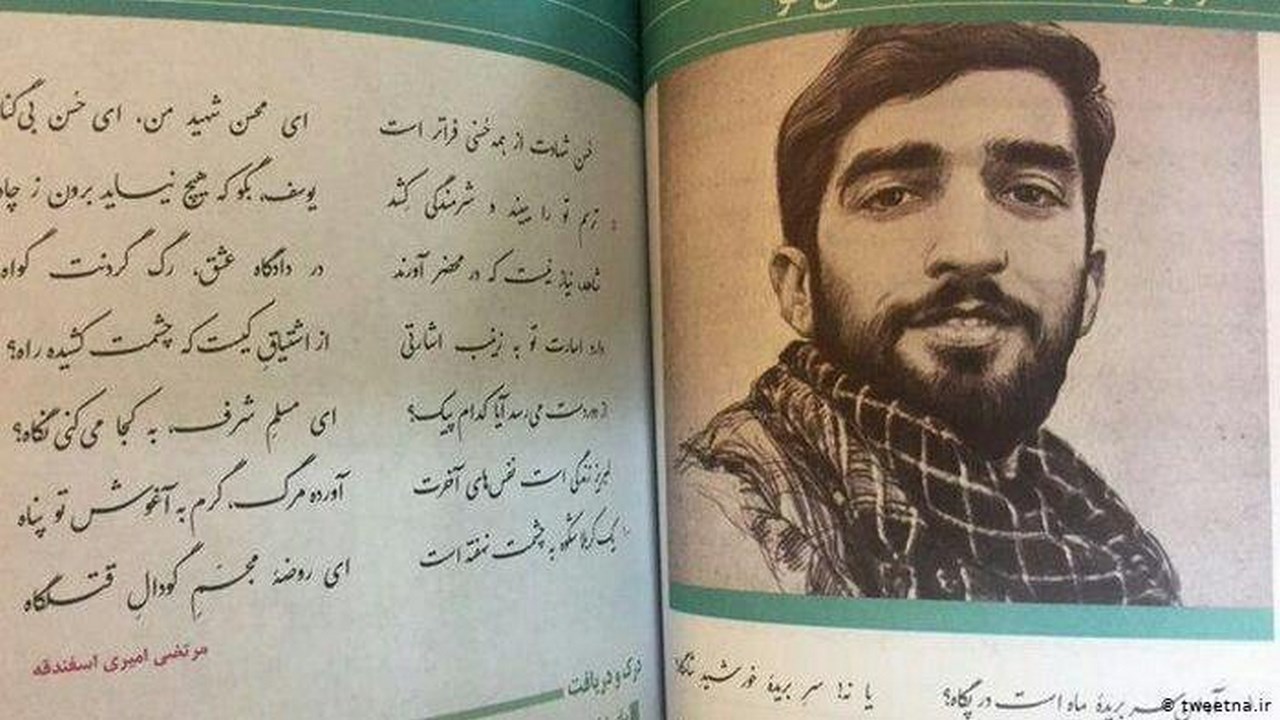 سرِ بریدهٔ ماه است در پگاه؟ یا نه! سرِ بریدهٔ خورشید
حُسن شهادت از همه حُسنی فراتر است ای محسن شهید من، ای حُسن بی‌گنا
ترسم تو را ببیند و شرمندگی کشد یوسف، بگو که هیچ نیاید برون ز چا
شاهد نیاز نیست که در محضر آورند در دادگاه عشق، رگ گردنت گواه
دارد اسارت تو به زینب اشارتی از اشتیاقِ کیست که چشمت کشیده راه؟
از دوردست می‌رسد آیا کدام پیک؟ ای مسلمِ شرف، به کجا می‌کنی نگاه؟
لبریز زندگی است نفس‌های آخرت آورده مرگ، گرم به آغوش تو پناه
یک کربلا شکوه به چشمت نهفته است ای روضهٔ مجسّمِ گودالِ قتلگاه
مرتضی امیری اسفندقه
درک و دریافت
© tweetna.ir